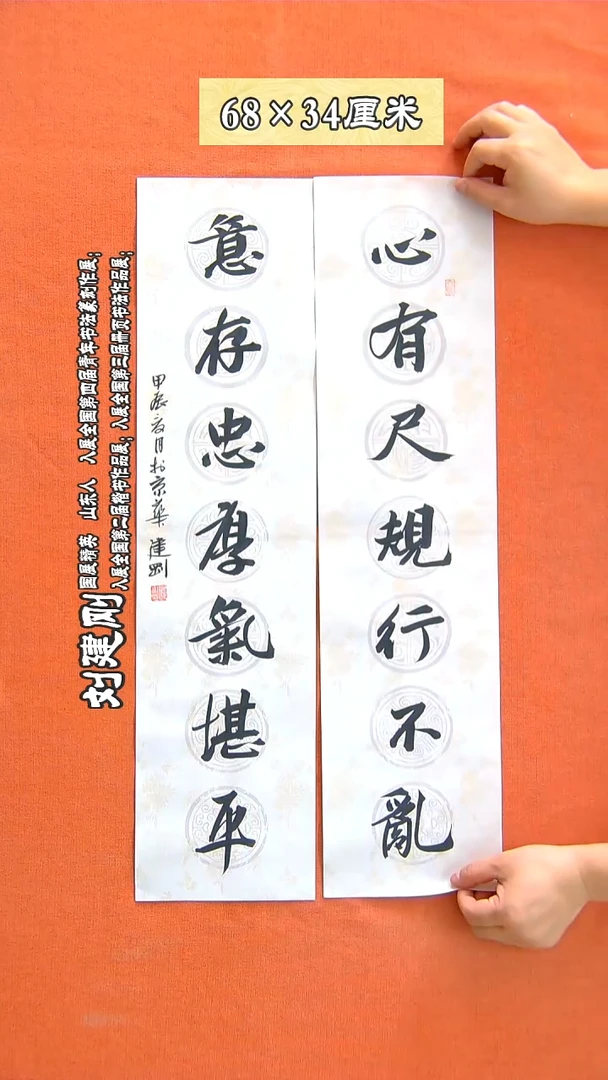 68×34厘米
心有尺規行不亂
意存忠厚氣堪平
甲辰夏月於京華 建剛
刘建刚
国展精英 山东人 入展全国第四届青年书法篆刻作展；
入展全国第二届楷书作品展；入展全国第三届册页书法作品展；